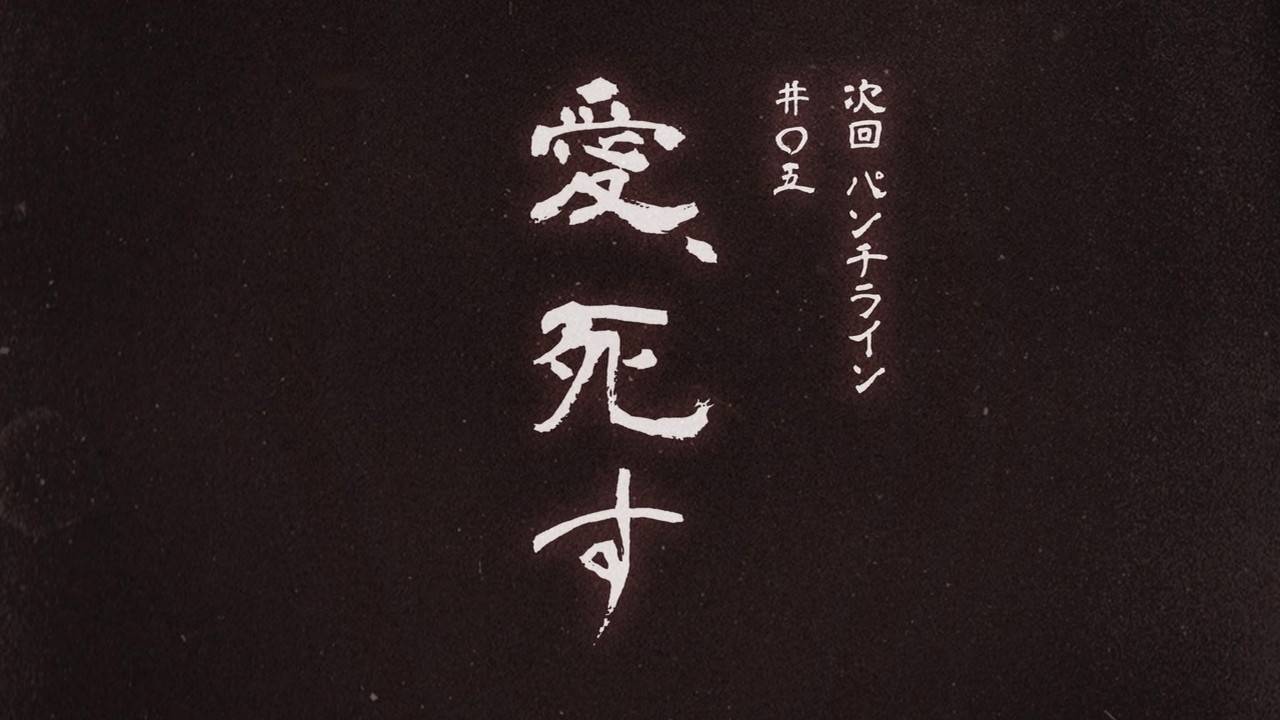 次回 パンチライン
井〇五
愛、死す